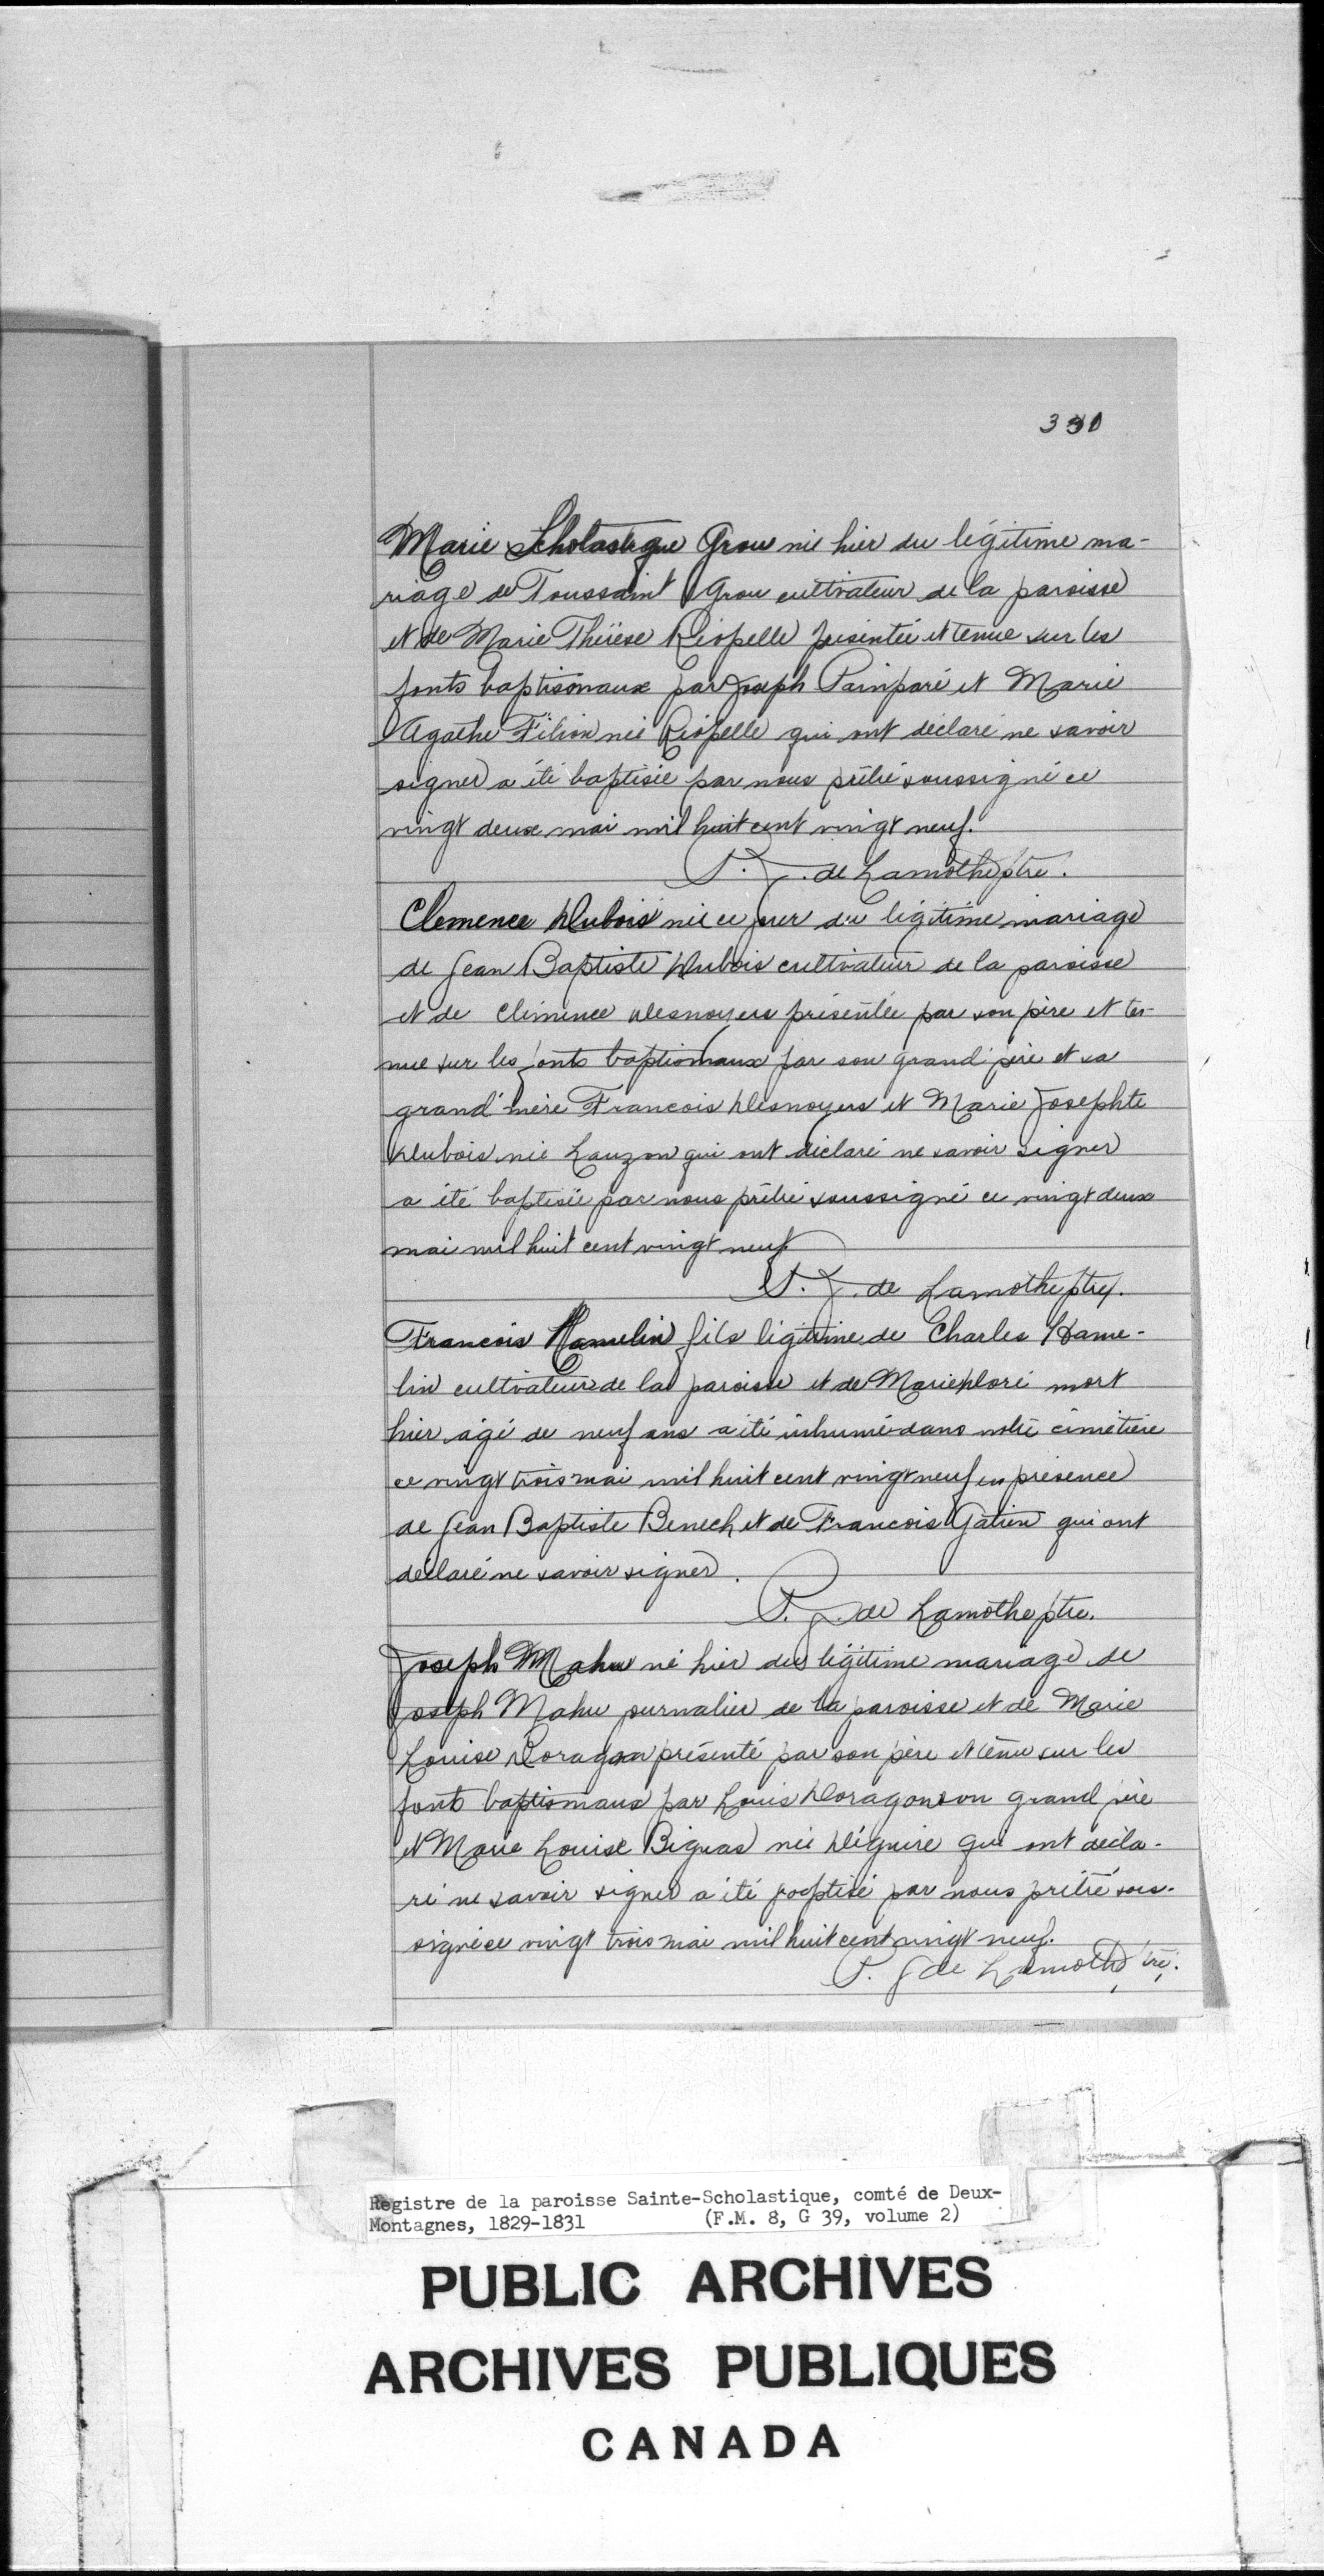 330
Marie Scholastique Grou née hier du légitime ma-
riage de Toussaint Grou cultivateur de la paroisse
et de Marie Thérèse Riopelle présentée et tenue sur les
fonts baptismaux par Joseph Painparé et Marie
Agathe Filion née Riopelle qui ont déclaré ne savoir
signer a été baptisée par nous prêtre soussigné ce
vingt deux mai mil huit cent vingt neuf.
P. J. de Lamothe ptre.
Clemence Dubois née ce jour du légitime mariage
de Jean Baptiste Dubois cultivateur de la paroisse
et de Clémence Desnoyers présentée par son père et te-
nue sur les fonts baptismaux par son grand père et sa
grand'mère Francois Desnoyers et Marie Josephte
Dubois née Lauzon qui ont déclaré ne savoir signer
a été baptisée par nous prêtre soussigné ce vingt deux
mai mil huit cent vingt neuf
P. J. de Lamothe ptre.
Francois Hamelin fils légitime de Charles Hame-
lin cultivateur de la paroisse et de Marie Doré mort
hier agé de neuf ans a été inhumé dans notre cimetière
ce vingt trois mai mil huit cent vingt neuf en présence
de Jean Baptiste Benech et de Francois Gatien qui ont
déclaré ne savoir signer.
P. J. de Lamothe ptre.
Joseph Mahu né hier du légitime mariage de
Joseph Mahu journalier de la paroisse et de Marie
Louise Doragon présenté par son père et tenu sur les
fonts baptismaux par Louis Doragon son grand père
et Marie Louise Bigras née Déguire qui ont décla-
ré ne savoir signer a été baptisé par nous prêtre sous-
signé ce vingt trois mai mil huit cent vingt neuf.
P. J de Lamothe tre.
Registre de la paroisse Sainte-Scholastique, comté de Deux-
Montagnes, 1829-1831 (F.M. 8, G 39, volume 2)
PUBLIC ARCHIVES
ARCHIVES PUBLIQUES
CANADA